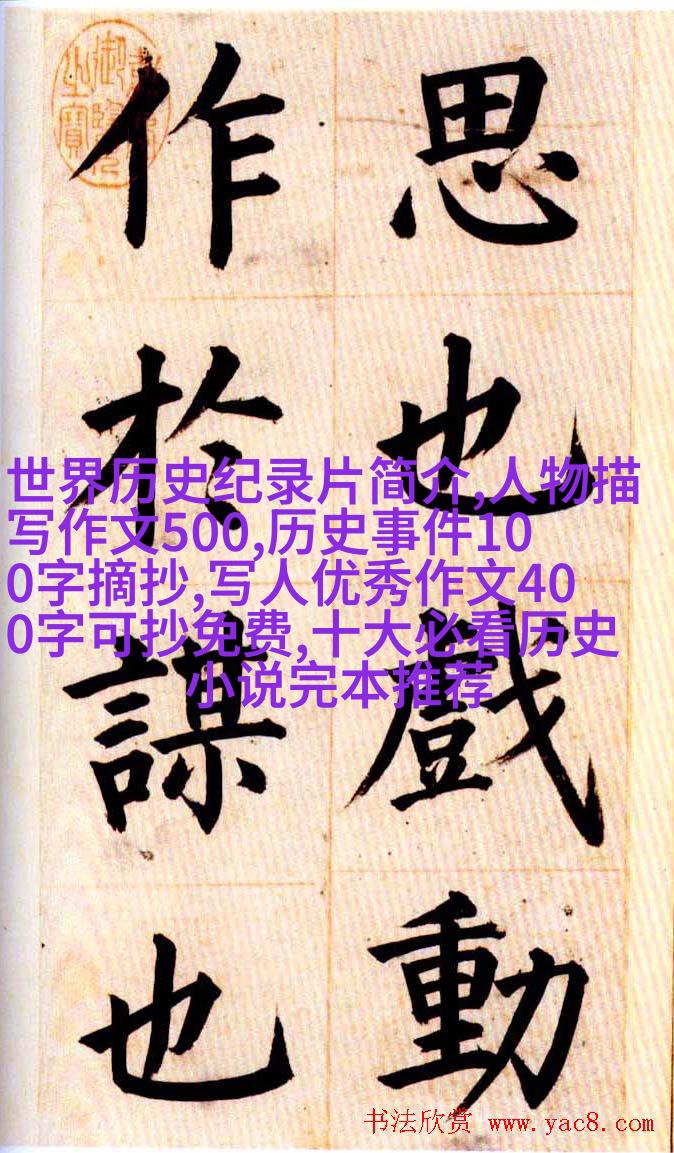 思也戲動
作於謀也
世界历史纪录片简介,人物描
写作文500,历史事件10
0字摘抄,写人优秀作文40
0字可抄免费,十大必看历史
小说完本推荐
书法欣赏 www.yac8.com